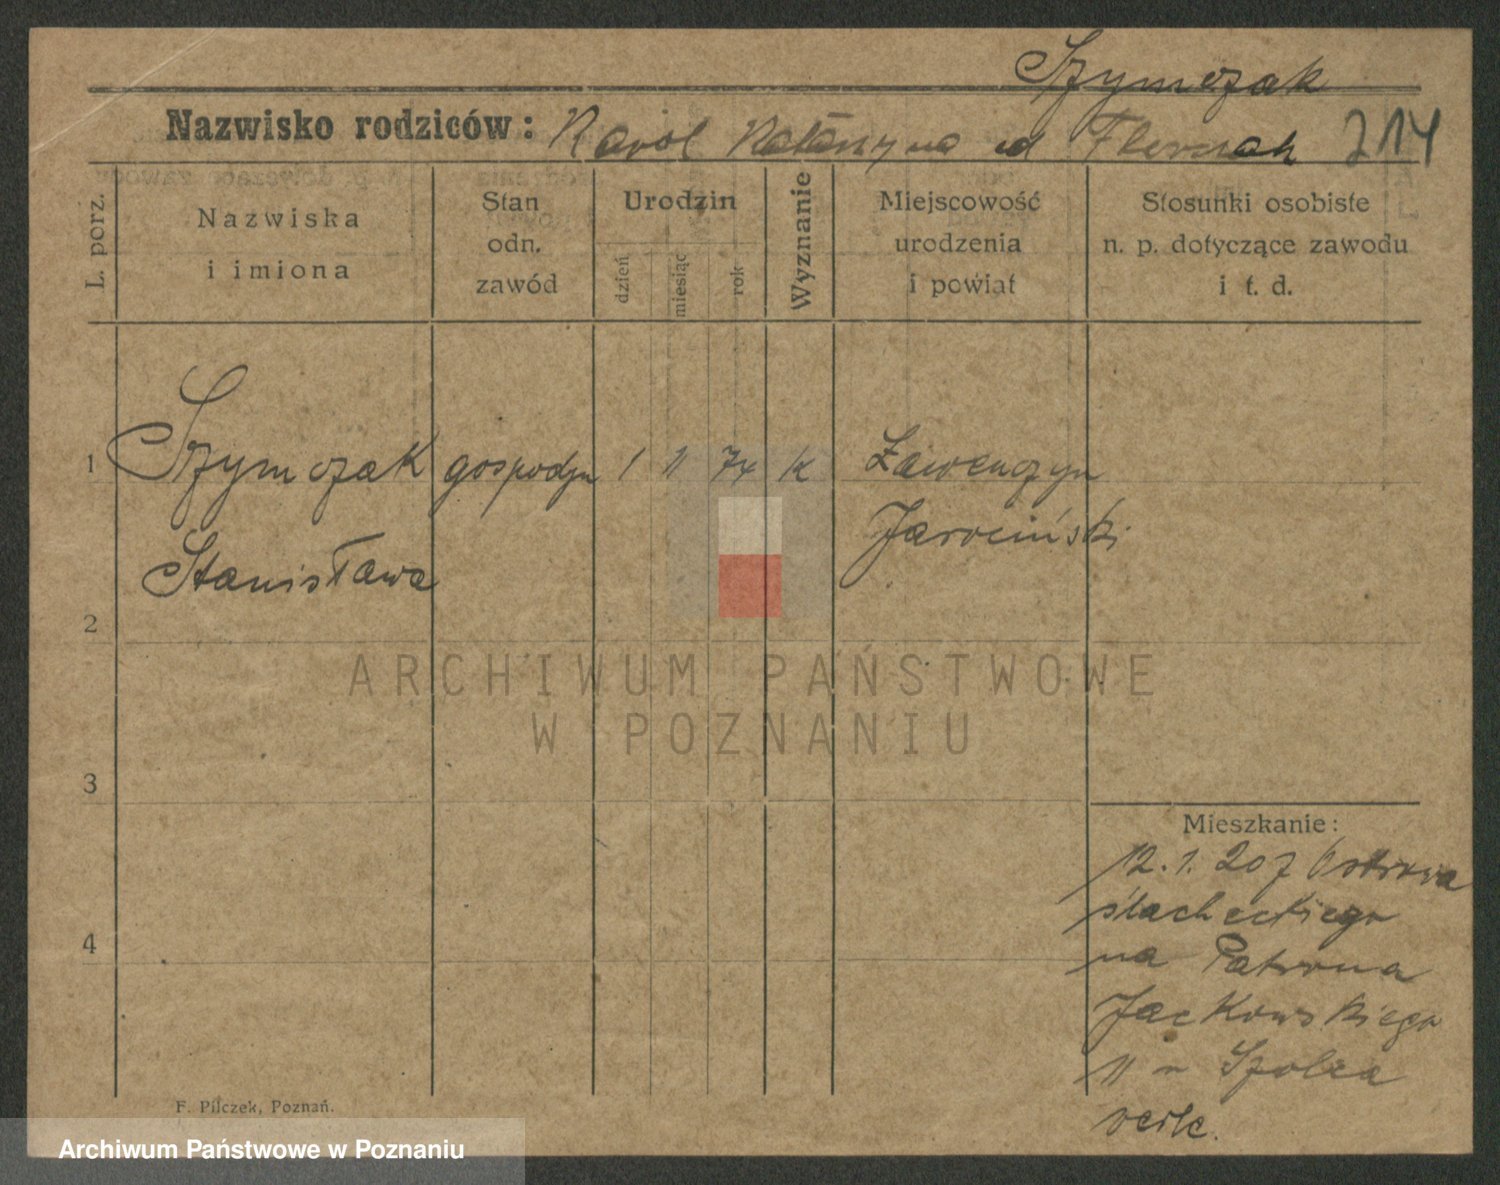 Szymczak
Nazwisko rodziców: Karol Katarzyna od 214
L. porz.
Nazwiska
i imiona
Stan
odn.
zawód
Urodzin
dzień
miesiąc
rok
Wyznanie
Miejscowość
urodzenia
i powiat
Stosunki osobiste
n. p. dotyczące zawodu
i t. d.
1 Szymczak gospodyn 1 11 74 k
Jarociński
Stanisława
2
3
4
Mieszkanie:
12. 1. 20 z Ostrowa
na Patrona
Jackowskiego
11
F. Pilczek, Poznań.
ARCHIWUM PAŃSTWOWE
W POZNANIU
Archiwum Państwowe w Poznaniu